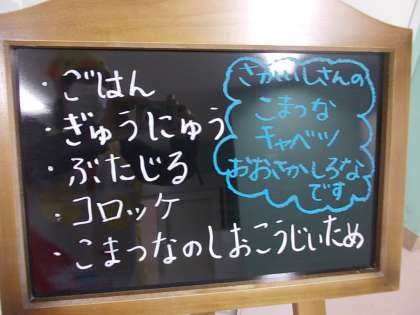 ・ごはん
・ぎゅうにゅう
・ぶたじる
・コロッケ
・こまつなのしおこうじいため
さかいしさんの
こまつな
キャベツ
おおさかしろな
です